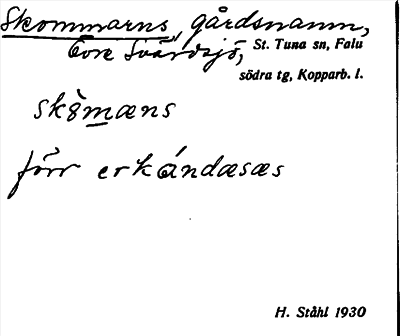 Skommarns, gårdsnamn,
Övre Svärdsjö, St. Tuna sn, Falu
södra tg, Kopparb. l.
skòmæns
förr erkándæsæs
H. Ståhl 1930